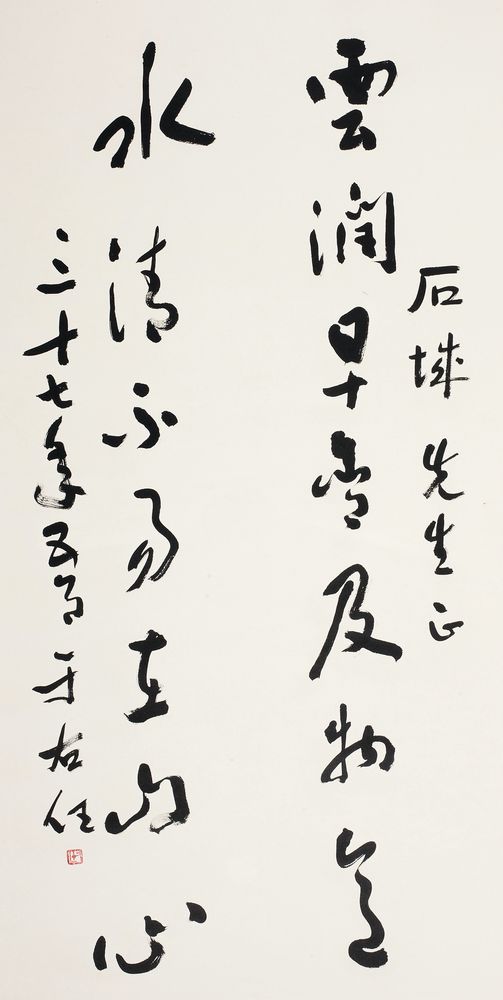 石城先生正
雲潤早畜及物意
水清不易在山心
三十七年五月 于右任